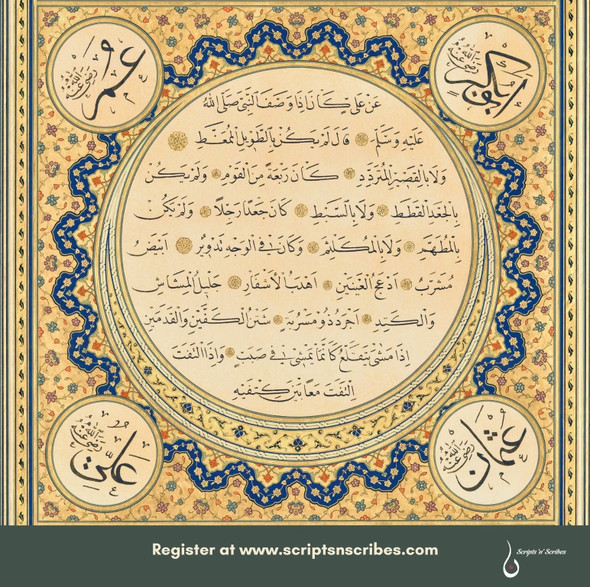 أبو بكر رضي الله عنه
عمر رضي الله عنه
عن علي كان اذا وصف النبي صلى الله
عليه وسلم قال لم يكن بالطويل الممغط
ولا بالقصير المتردد كان ربعة من القوم ولم يكن
بالجعد القطط ولا بالسبط كان جعدا رجلا ولم يكن
بالمطهم ولا بالمكلثم وكان في الوجه تدوير ابيض
مشرب ادعج العينين اهدب الأشفار جليل المشاش
والكتد اجرد ذو مسربة شثن الكفين والقدمين
اذا مشى يتقلع كأنما يمشي في صبب واذا التفت
التفت معا بين كتفيه
عثمان رضي الله عنه
علي رضي الله عنه
Register at www.scriptsnscribes.com
Scripts 'n' Scribes